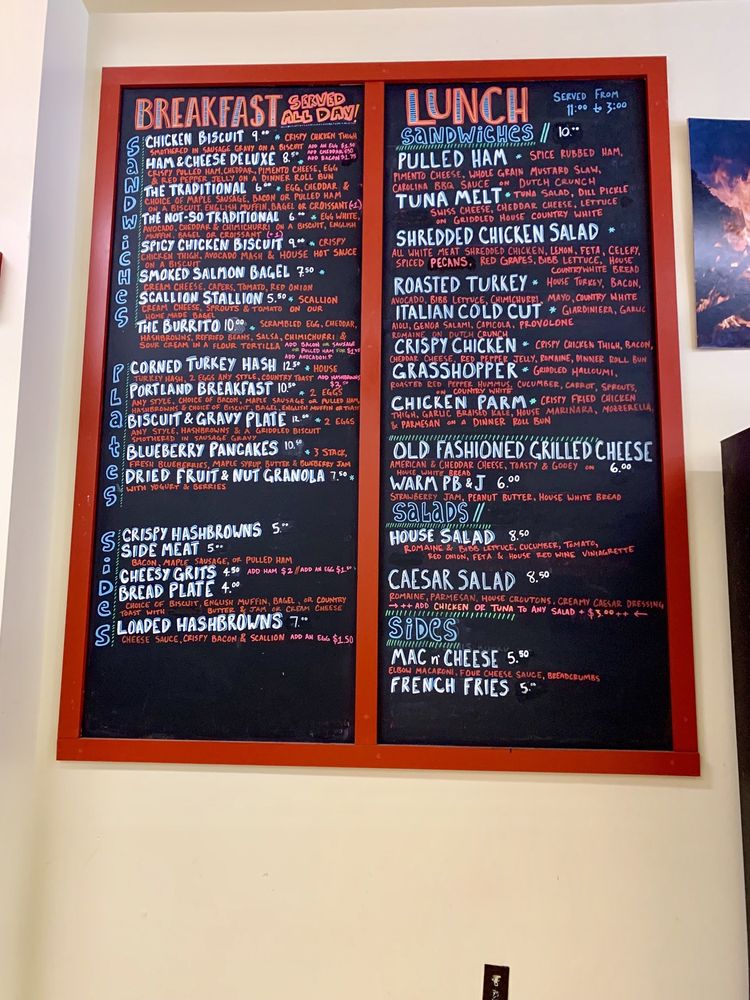 BREAKFAST SERVED ALL DAY!
SANDWICHES
CHICKEN BISCUIT 9.00 * CRISPY CHICKEN THIGH
SMOTHERED IN SAUSAGE GRAVY ON A BISCUIT ADD AN EGG $1.50
ADD CHEDDAR
HAM & CHEESE DELUXE 8.50 * ADD BACON $1.75
CRISPY PULLED HAM, CHEDDAR, PIMENTO CHEESE, EGG
& RED PEPPER JELLY ON A DINNER ROLL BUN
THE TRADITIONAL 6.00 * EGG, CHEDDAR &
CHOICE OF MAPLE SAUSAGE, BACON OR PULLED HAM
ON A BISCUIT, ENGLISH MUFFIN, BAGEL OR CROISSANT (+1)
THE NOT-SO-TRADITIONAL 6.00 * EGG WHITE,
AVOCADO, CHEDDAR & CHIMICHURRI ON A BISCUIT, ENGLISH
MUFFIN, BAGEL OR CROISSANT (+1)
SPICY CHICKEN BISCUIT 9.00 * CRISPY
CHICKEN THIGH, AVOCADO MASH & HOUSE HOT SAUCE
ON A BISCUIT
SMOKED SALMON BAGEL 7.50 *
CREAM CHEESE, CAPERS, TOMATO, RED ONION
SCALLION STALLION 5.50 * SCALLION
CREAM CHEESE, SPROUTS & TOMATO ON OUR
HOME MADE BAGEL
THE BURRITO 10.00 * SCRAMBLED EGG, CHEDDAR,
HASHBROWNS, REFRIED BEANS, SALSA, CHIMICHURRI &
SOUR CREAM IN A FLOUR TORTILLA ADD BACON OR SAUSAGE
OR PULLED HAM FOR
ADD AVOCADO
PLATES
CORNED TURKEY HASH 12.50 * HOUSE
TURKEY HASH, 2 EGGS ANY STYLE, COUNTRY TOAST ADD HASHBROWNS
PORTLAND BREAKFAST 10.50 * 2 EGGS
ANY STYLE, CHOICE OF BACON, MAPLE SAUSAGE OR PULLED HAM,
HASHBROWNS & CHOICE OF BISCUIT, BAGEL, ENGLISH MUFFIN OR TOAST
BISCUIT & GRAVY PLATE 12.00 * 2 EGGS
ANY STYLE, HASHBROWNS & A GRIDDLED BISCUIT
SMOTHERED IN SAUSAGE GRAVY
BLUEBERRY PANCAKES 10.50 * 3 STACK,
FRESH BLUEBERRIES, MAPLE SYRUP, BUTTER & BLUEBERRY JAM
DRIED FRUIT & NUT GRANOLA 7.50 *
WITH YOGURT & BERRIES
SIDES
CRISPY HASHBROWNS 5.00
SIDE MEAT 5.00
BACON, MAPLE SAUSAGE, OR PULLED HAM
CHEESY GRITS 4.50 ADD HAM $2 // ADD AN EGG $1.50
BREAD PLATE 4.00
CHOICE OF BISCUIT, ENGLISH MUFFIN, BAGEL, OR COUNTRY
TOAST WITH BUTTER & JAM OR CREAM CHEESE
LOADED HASHBROWNS 7.00
CHEESE SAUCE, CRISPY BACON & SCALLION ADD AN EGG $1.50
LUNCH SERVED FROM
11:00 to 3:00
SANDWICHES // 10.00
PULLED HAM * SPICE RUBBED HAM,
PIMENTO CHEESE, WHOLE GRAIN MUSTARD SLAW,
CAROLINA BBQ SAUCE ON DUTCH CRUNCH
TUNA MELT * TUNA SALAD, DILL PICKLE
SWISS CHEESE, CHEDDAR CHEESE, LETTUCE
ON GRIDDLED HOUSE COUNTRY WHITE
SHREDDED CHICKEN SALAD *
ALL WHITE MEAT SHREDDED CHICKEN, LEMON, FETA, CELERY,
SPICED PECANS, RED GRAPES, BIBB LETTUCE, HOUSE
COUNTRYWHITE BREAD
ROASTED TURKEY * HOUSE TURKEY, BACON,
AVOCADO, BIBB LETTUCE, CHIMICHURRI, MAYO, COUNTRY WHITE
ITALIAN COLD CUT * GIARDINIERA, GARLIC
AIOLI, GENOA SALAMI, CAPICOLA, PROVOLONE
ROMAINE ON DUTCH CRUNCH
CRISPY CHICKEN * CRISPY CHICKEN THIGH, BACON,
CHEDDAR CHEESE, RED PEPPER JELLY, ROMAINE, DINNER ROLL BUN
GRASSHOPPER * GRIDDLED HALLOUMI,
ROASTED RED PEPPER HUMMUS, CUCUMBER, CARROT, SPROUTS,
ON COUNTRY WHITE
CHICKEN PARM * CRISPY FRIED CHICKEN
THIGH, GARLIC BRAISED KALE, HOUSE MARINARA, MOZZERELLA,
& PARMESAN ON A DINNER ROLL BUN
OLD FASHIONED GRILLED CHEESE
AMERICAN & CHEDDAR CHEESE, TOASTY & GOOEY ON 6.00
HOUSE WHITE BREAD
WARM PB & J 6.00
STRAWBERRY JAM, PEANUT BUTTER, HOUSE WHITE BREAD
SALADS //
HOUSE SALAD 8.50
ROMAINE & BIBB LETTUCE, CUCUMBER, TOMATO,
RED ONION, FETA & HOUSE RED WINE VINIAGRETTE
CAESAR SALAD 8.50
ROMAINE, PARMESAN, HOUSE CROUTONS, CREAMY CAESAR DRESSING
→ ++ ADD CHICKEN OR TUNA TO ANY SALAD + $3.00 ++ ←
SIDES
MAC n' CHEESE 5.50
ELBOW MACARONI, FOUR CHEESE SAUCE, BREADCRUMBS
FRENCH FRIES 5.00